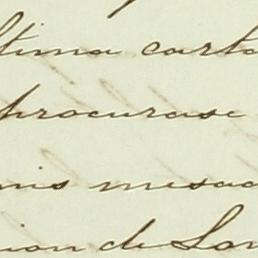 ltima carta
procurase
mis mesad
ion de Lon